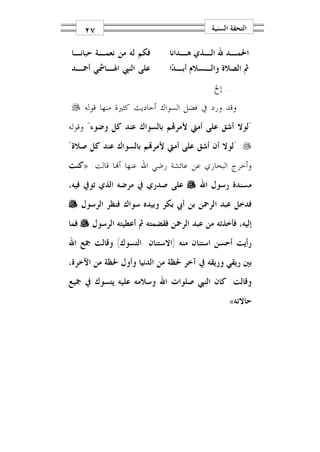 التحفة السنية
٢٧
الحمـــد لله الـــذي هـــدانا فكم له من نعمـــة حبانـــا
ثم الصلاة والـــسلام أبـــدًا على النبي الهـــاشمي أحمـــد
.... إلخ
وقد ورد في فضل السواك أحاديث كثيرة منها قوله ﷺ:
"لولا أشق على أمتي لأمرتهم بالسواك عند كل وضوء" وقوله
ﷺ: "لولا أن أشق على أمتي لأمرتهم بالسواك عند كل صلاة"
وأخرج البخاري عن عائشة رضي الله عنها أنها قالت: «كنت
مسندة رسول الله ﷺ على صدري في مرضه الذي توفي فيه،
فدخل عبد الرحمن بن أبي بكر وبيده سواك فنظر الرسول ﷺ
إليه، فأخذته من عبد الرحمن فقضمته ثم أعطيته الرسول ﷺ فما
رأيت أحسن استنان منه (الاستنان: التسوك) وقالت جمع الله
بين ريقي وريقه في آخر لحظة من الدنيا وأول لحظة من الآخرة،
وقالت: كان النبي صلوات الله وسلامه عليه يتسوك في جميع
حالاته»